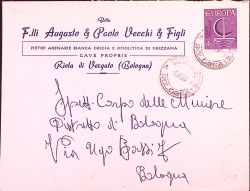 Ditta
F.lli Augusto & Paolo Vecchi & Figli
PIETRE ARENARIE BIANCA GRIGIA E OFIOLITICA DI GRIZZANA
CAVE PROPRIE
Riola di Vergato (Bologna)
EUROPA
Spett. Corpo delle Miniere
Distretto di Bologna
Via Ugo Bassi 7
Bologna